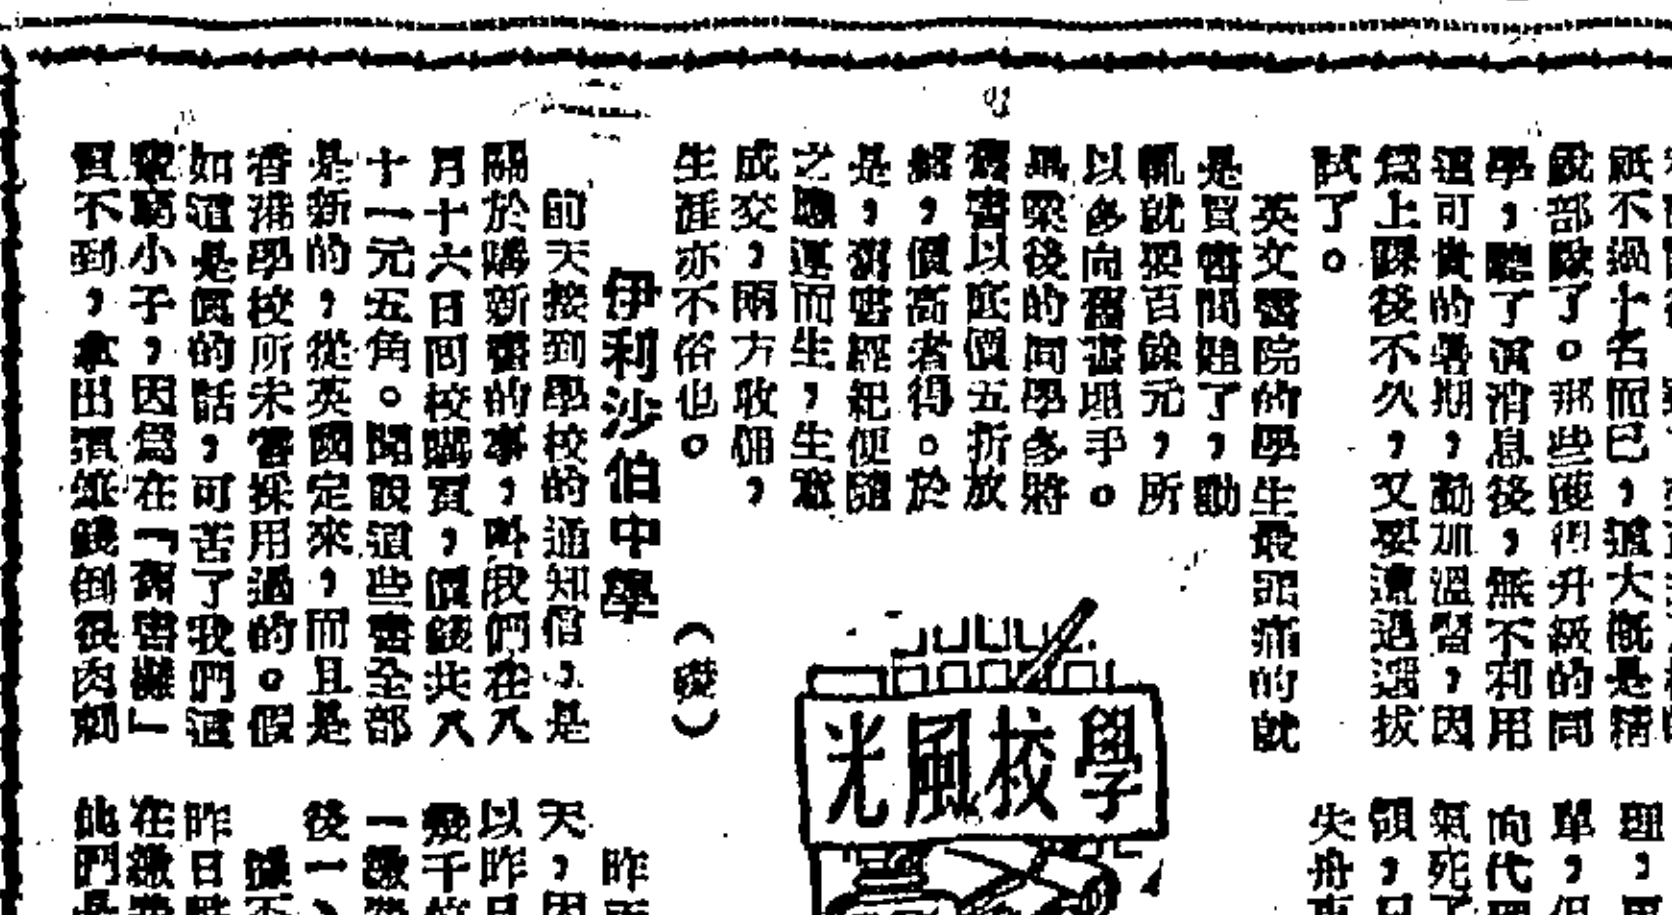 祇不過十名而已，這大概是精
說部歟了。那些獲得升級的同
學，聽了消息後，無不利用
這可貴的暑期，勤加溫習，因
爲上課後不久，又要遭遇選拔
試了。
英文書院的學生最頭痛的就
是買書問題了，動
輒就要百餘元，所
以多向舊書埋手。
畢業後的同學多將
舊書以底價五折放
，價高者得。於
是，舊書經紀便隨
之應運而生，生意
成交，兩方收佣，
生涯亦不俗也。
（）
伊利沙伯中學
前天接到學校的通知信，是
關於購新書的事，叫我們在八
月十六日回校購買，價錢共八
十一元五角。聞說這些書全部
是新的，從英國定來，而且是
香港學校所未嘗採用過的。假
如這是真的話，可苦了我們這
窮小子，因爲在「舊書攤」
買不到，拿出這筆錢倒很肉刺
學校風光
理，
單，但
向代
氣死了
領，
失舟
昨
天，因
以昨日
幾千
一繳
後一
據
昨日
在繳
他們